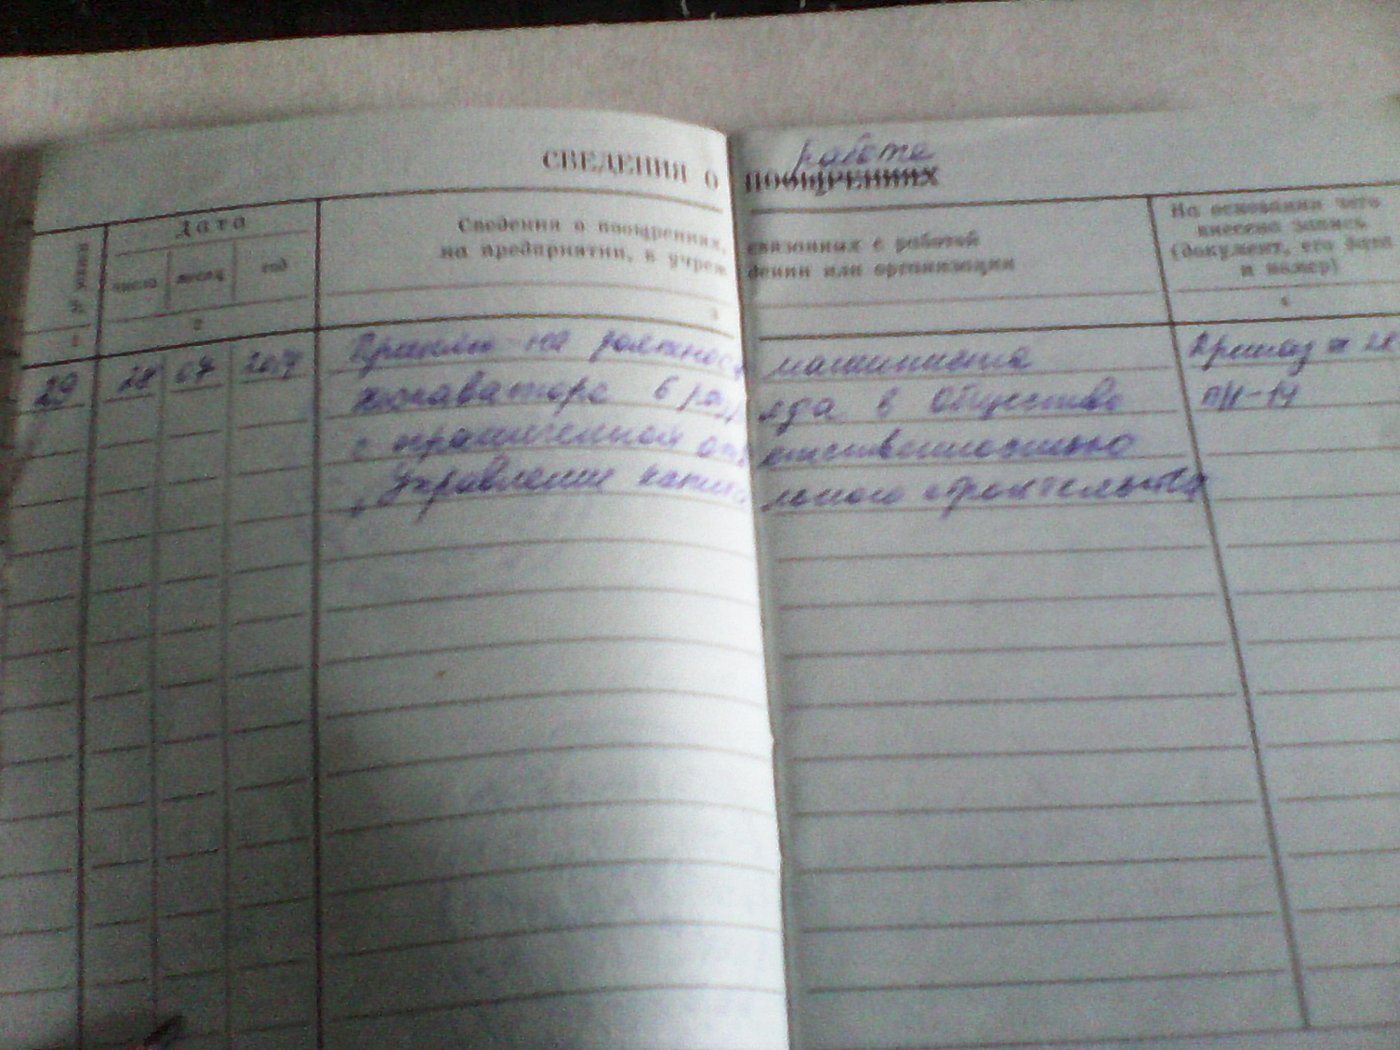 работе
СВЕДЕНИЯ О ПООЩРЕНИЯХ
№ записи
Дата
число месяц год
Сведения о поощрениях, связанных с работой
на предприятии, в учреждении или организации
На основании чего
внесена запись
(документ, его дата
и номер)
1 2 3 4
29 28 07 2014 Принят на должность машиниста Приказ № 28
экскаватора 6 разряда в Общество
с ограниченной ответственностью
„Управление капитального строительства